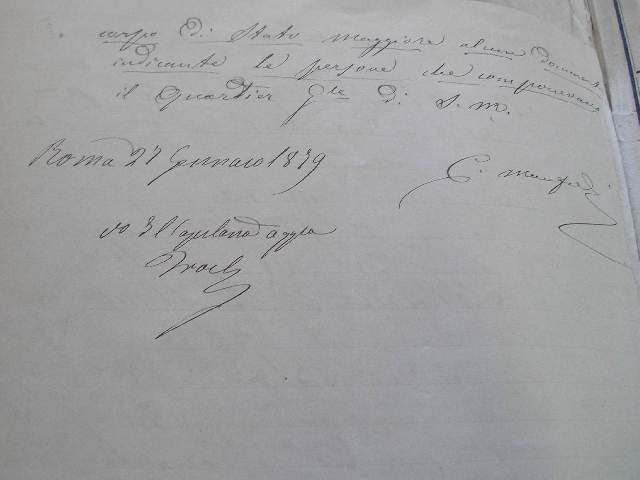 corpo di Stato Maggiore alcun document
indicante le persone che componevano
il Quartier Gle di S. M.
Roma 27 Gennaio 1879
C. Manfredi
Vo Il Capitano